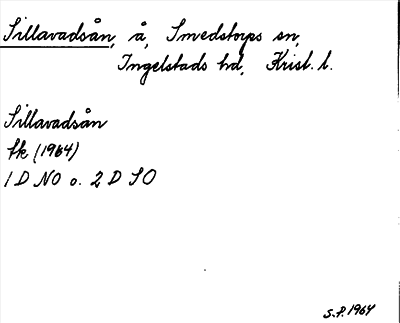 Sillavadsån, å, Smedstorps sn,
Ingelstads hd, Krist. l.
Sillavadsån
fk (1964)
1 D NO o. 2 D SO
S.P. 1964